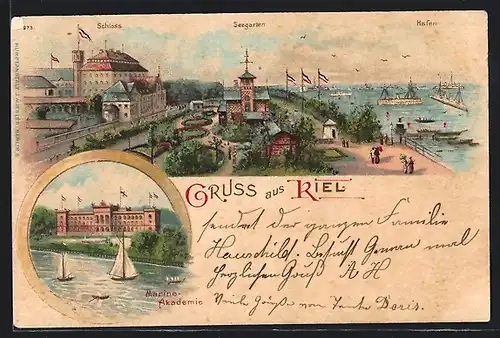 273
Schloss
Seegarten
Hafen
GRUSS aus KIEL
Marine-
Akademie
sendet der ganzen Familie
Hauschild. Besucht
mal
herzlichen Gruß AH
Viele Grüße von Tante Doris.